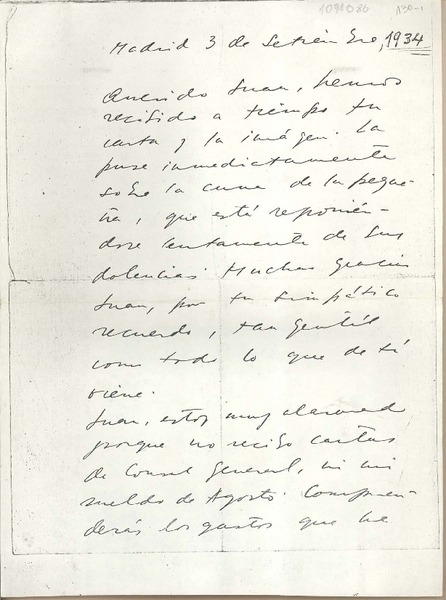 1091086
Madrid 3 de Setiembre, 1934
Querido Juan, hemos
recibido a tiempo tu
carta y la imágen. La
puse inmediatamente
sobre la cuna de la peque-
ña, que está reponién-
dose lentamente de sus
dolencias. Muchas gracias
Juan, por tu simpático
recuerdo, tan gentil
como todo lo que de ti
viene.
Juan, estoy muy alarmado
porque no recibo cartas
de Consul General, ni mi
sueldo de Agosto. Compren-
derás los gastos que he